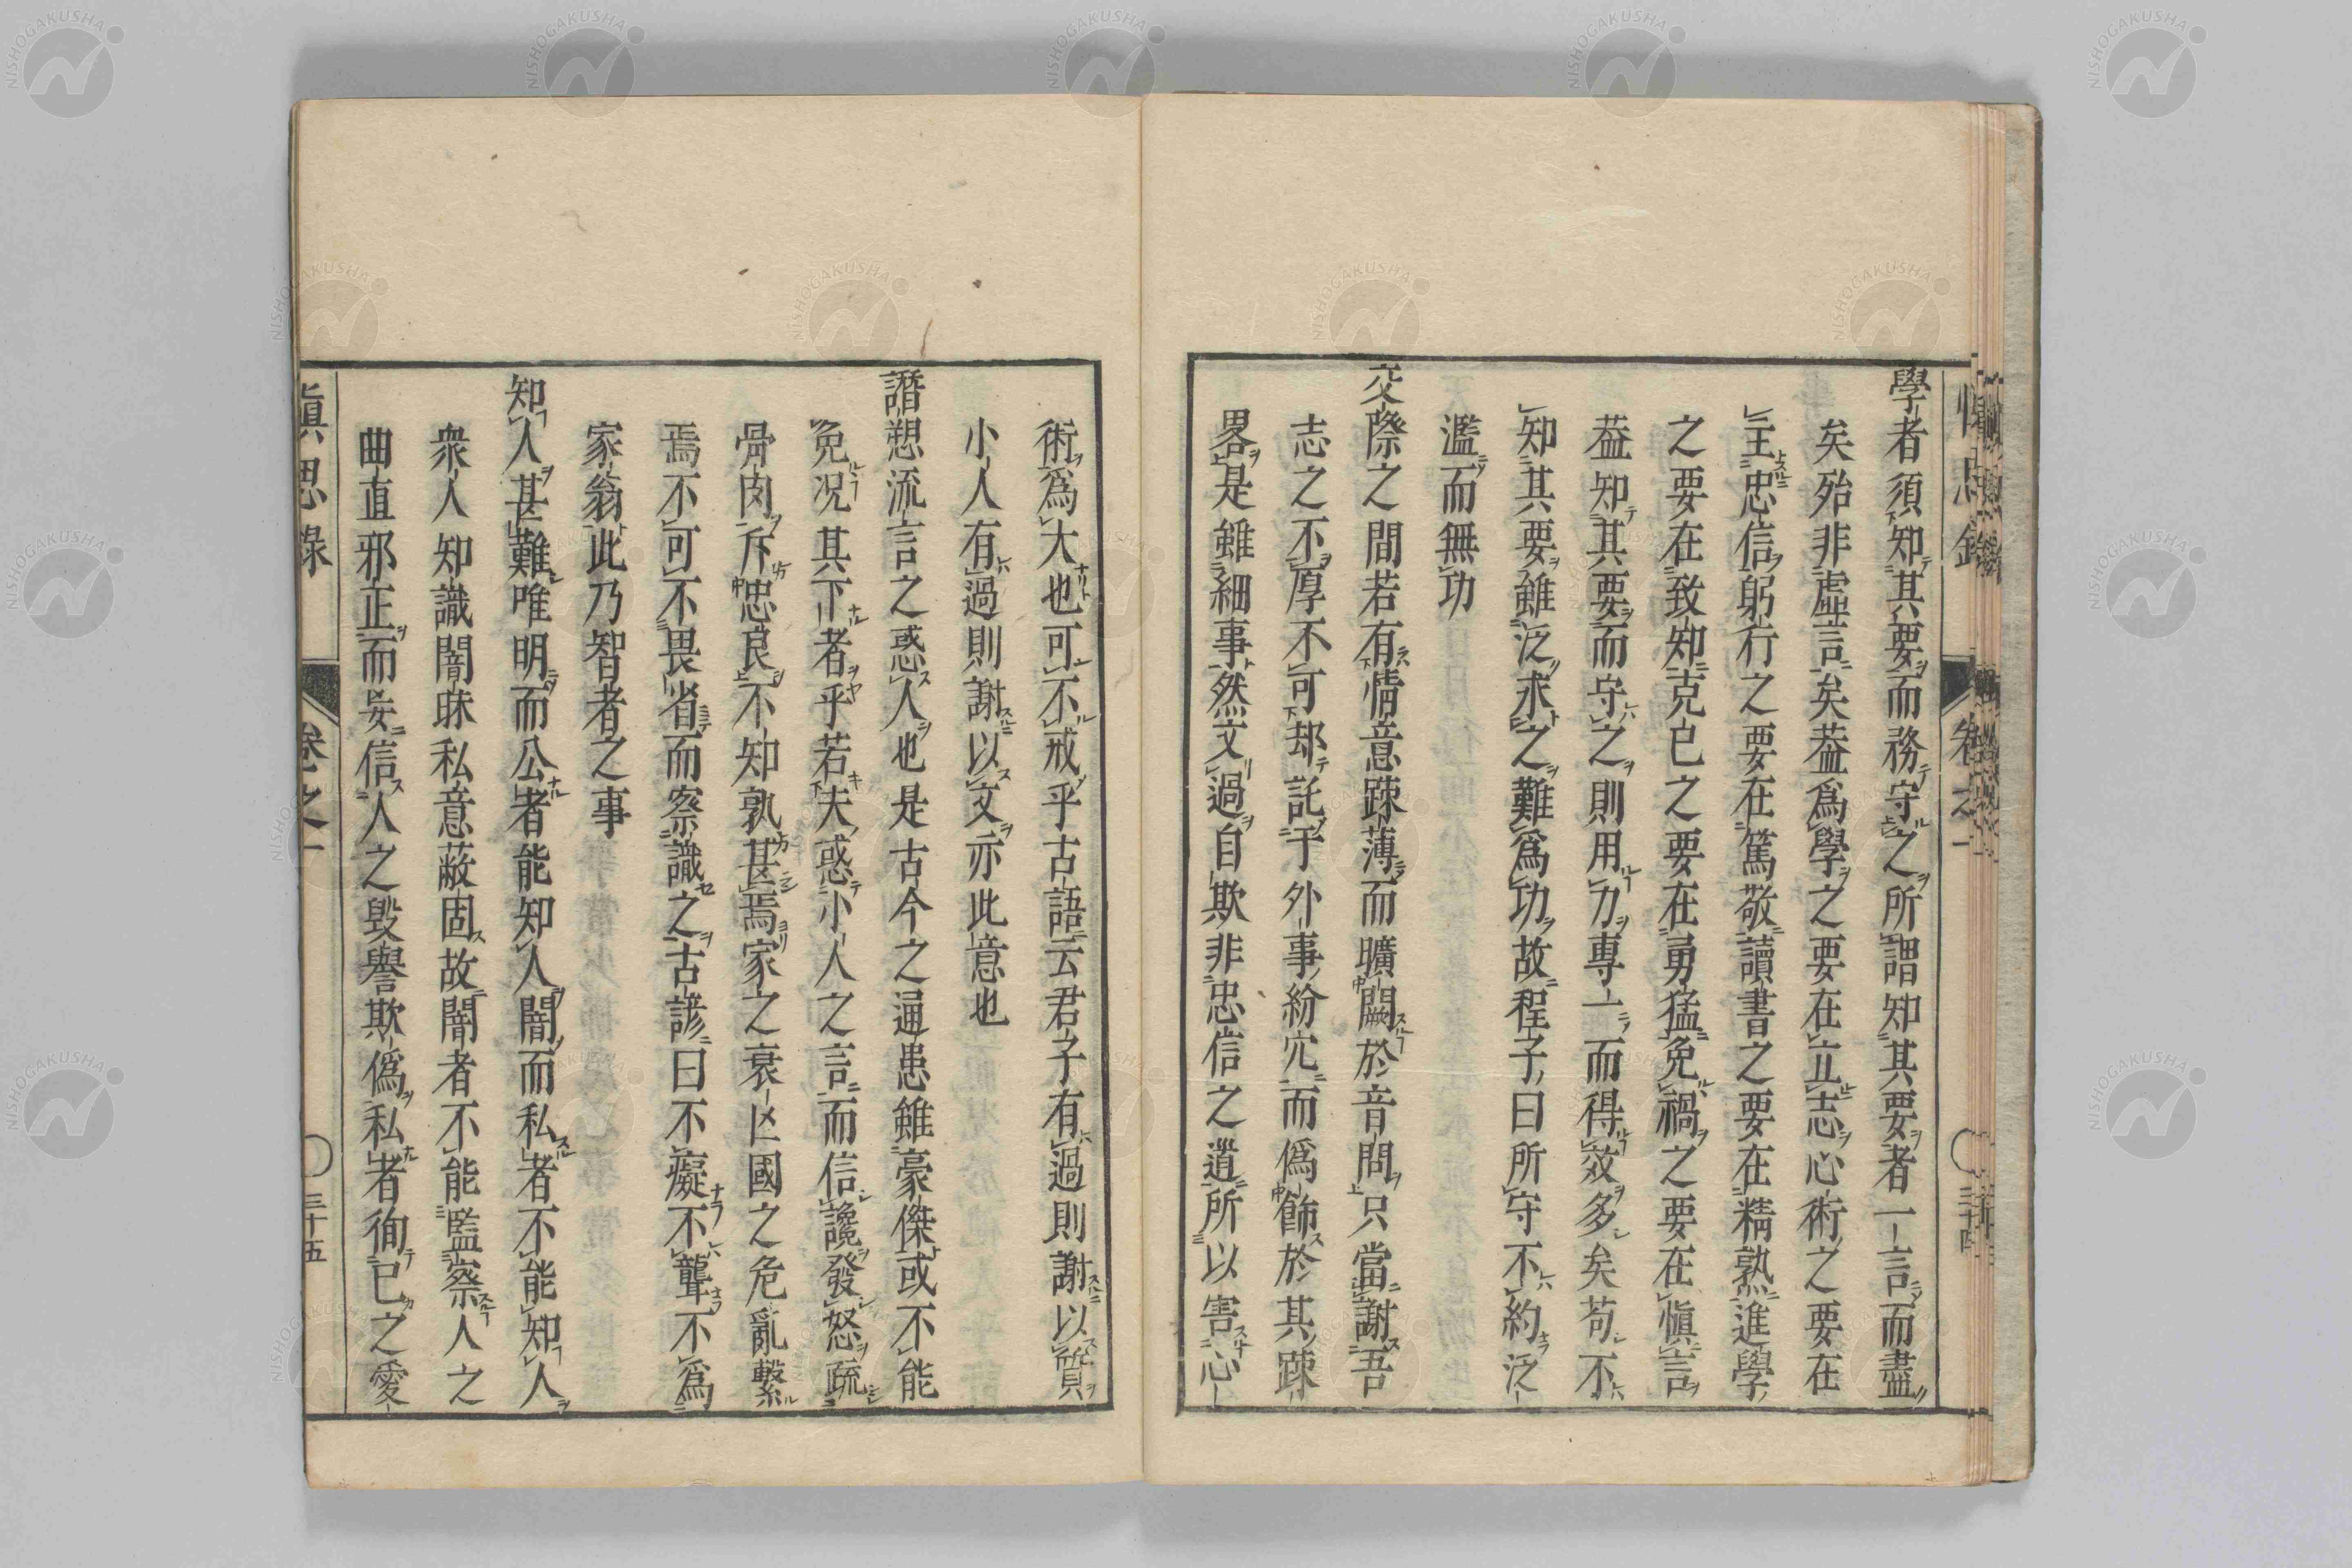 學者須知其要而務守之所謂知其要者一言而盡
矣殆非虛言矣葢爲學之要在立志心術之要在
主忠信躬行之要在篤敬讀書之要在精熟進學
之要在致知克已之要在勇猛免禍之要在愼言
葢知其要而守之則用力專一而得效多矣苟不
知其要雖泛求之難爲功故程子曰所守不約泛
濫而無功
交際之間若有情意疎薄而曠闕於音問只當謝吾
志之不厚不可却託于外事紛冗而僞飾於其疎
畧是雖細事然文過自欺非忠信之道所以害心
術爲大也可不戒乎古語云君子有過則謝以質
小人有過則謝以文亦此意也
譖愬流言之惑人也是古今之通患雖豪傑或不能
免况其下者乎若夫惑小人之言而信讒發怒疏
骨肉斥忠良不知孰甚焉家之衰亾國之危亂繫
焉不可不畏省而察識之古諺曰不癡不聾不爲
家翁此乃智者之事
知人甚難唯明而公者能知人闇而私者不能知人
衆人知識闇昧私意蔽固故闇者不能監察人之
曲直邪正而妄信人之毀譽欺僞私者徇已之愛
愼思錄 卷之一 三十五